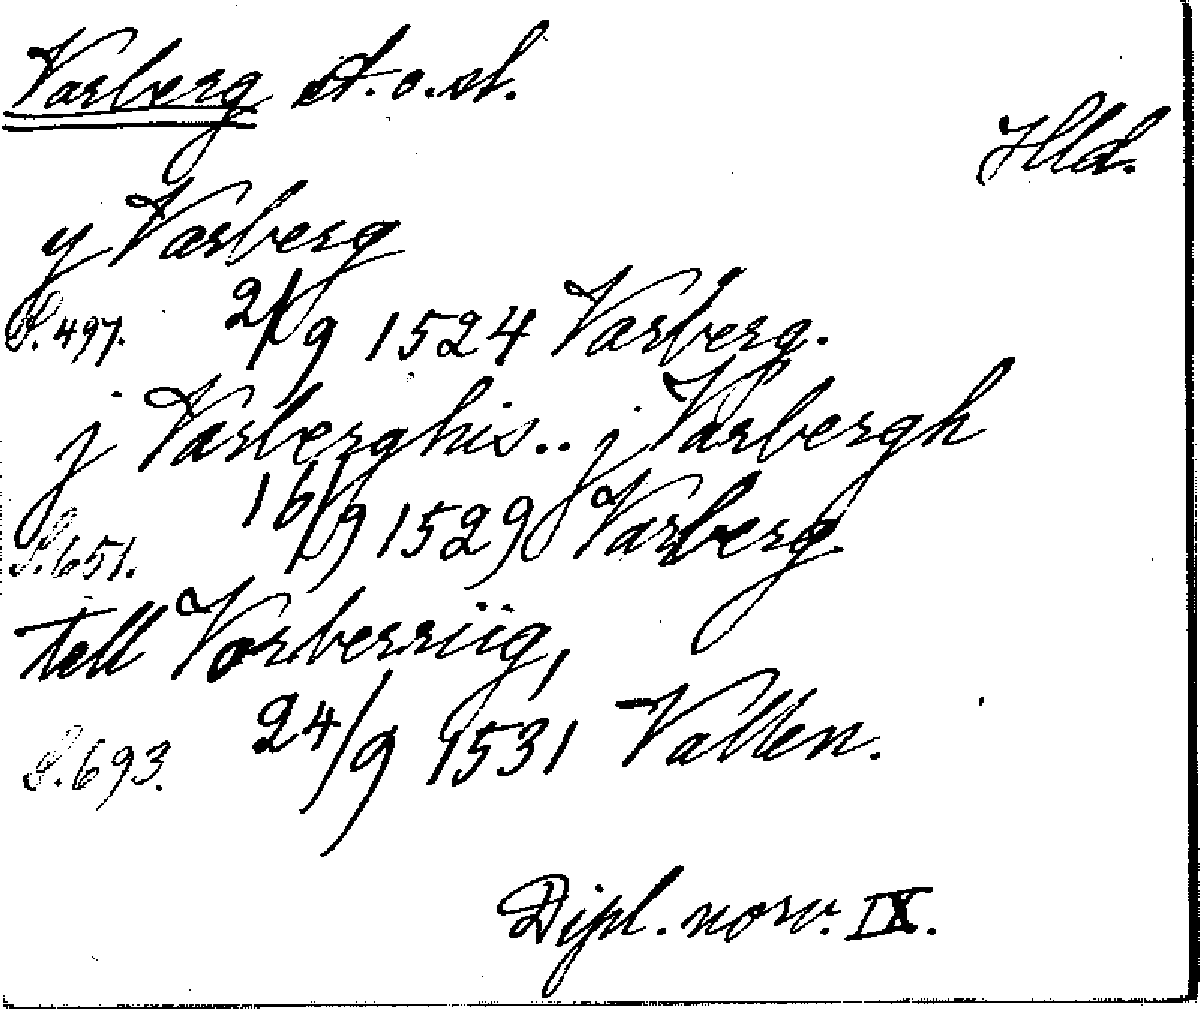 Varberg st. o. sl.
Hld.
y Varberg
S. 497. 2/9 1524 Varberg.
j Varberghis.. j Varbergh
S. 651. 16/9 1529 Varberg
tell Vorberriig,
S. 693. 24/9 1531 Vallen.
Dipl. norv. IX.